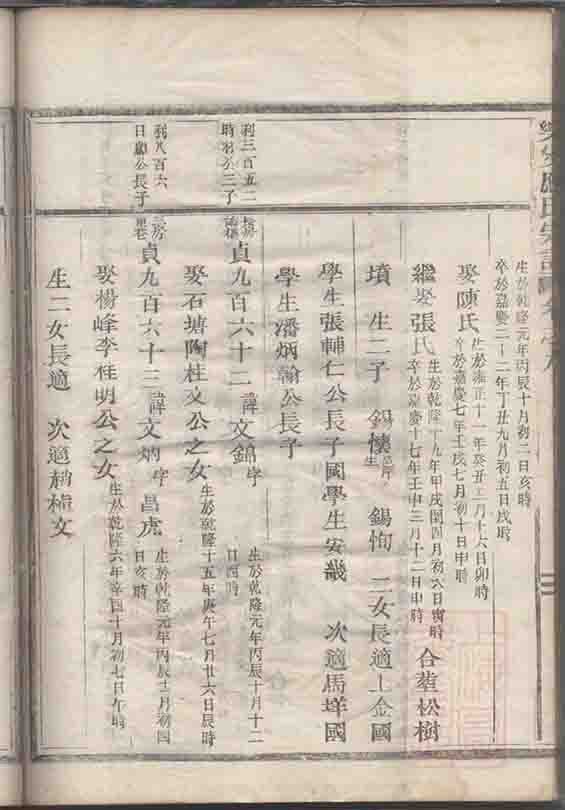 生於乾隆元年丙辰十月初二日亥時
卒於嘉慶二十二年丁丑九月初五日戌時
娶陳氏
生於雍正十一年癸丑二月十六日卯時
卒於嘉慶七年壬戌七月初十日申時
繼娶張氏
生於乾隆十九年甲戌閏四月初六日寅時
卒於嘉慶十七年壬申三月十二日申時
合塟松樹
墳 生二子 錫懷 錫恂 二女長適上金國
學生張輔仁公長子國學生安畿 次適馬垟國
學生潘炳翰公長子
利三百五二
時羽公三子
貞九百六十二諱文鎬字
生於乾隆元年丙辰十月十二
日酉時
娶石塘陶桂文公之女
生於乾隆十五年庚午七月廿六日辰時
利八百六
日顯公長子
貞九百六十三諱文炳字昌虎
生於乾隆元年丙辰十二月初四
日亥時
娶楊峰李桂明公之女
生於乾隆六年辛酉十月初七日午時
生二女長適 次適